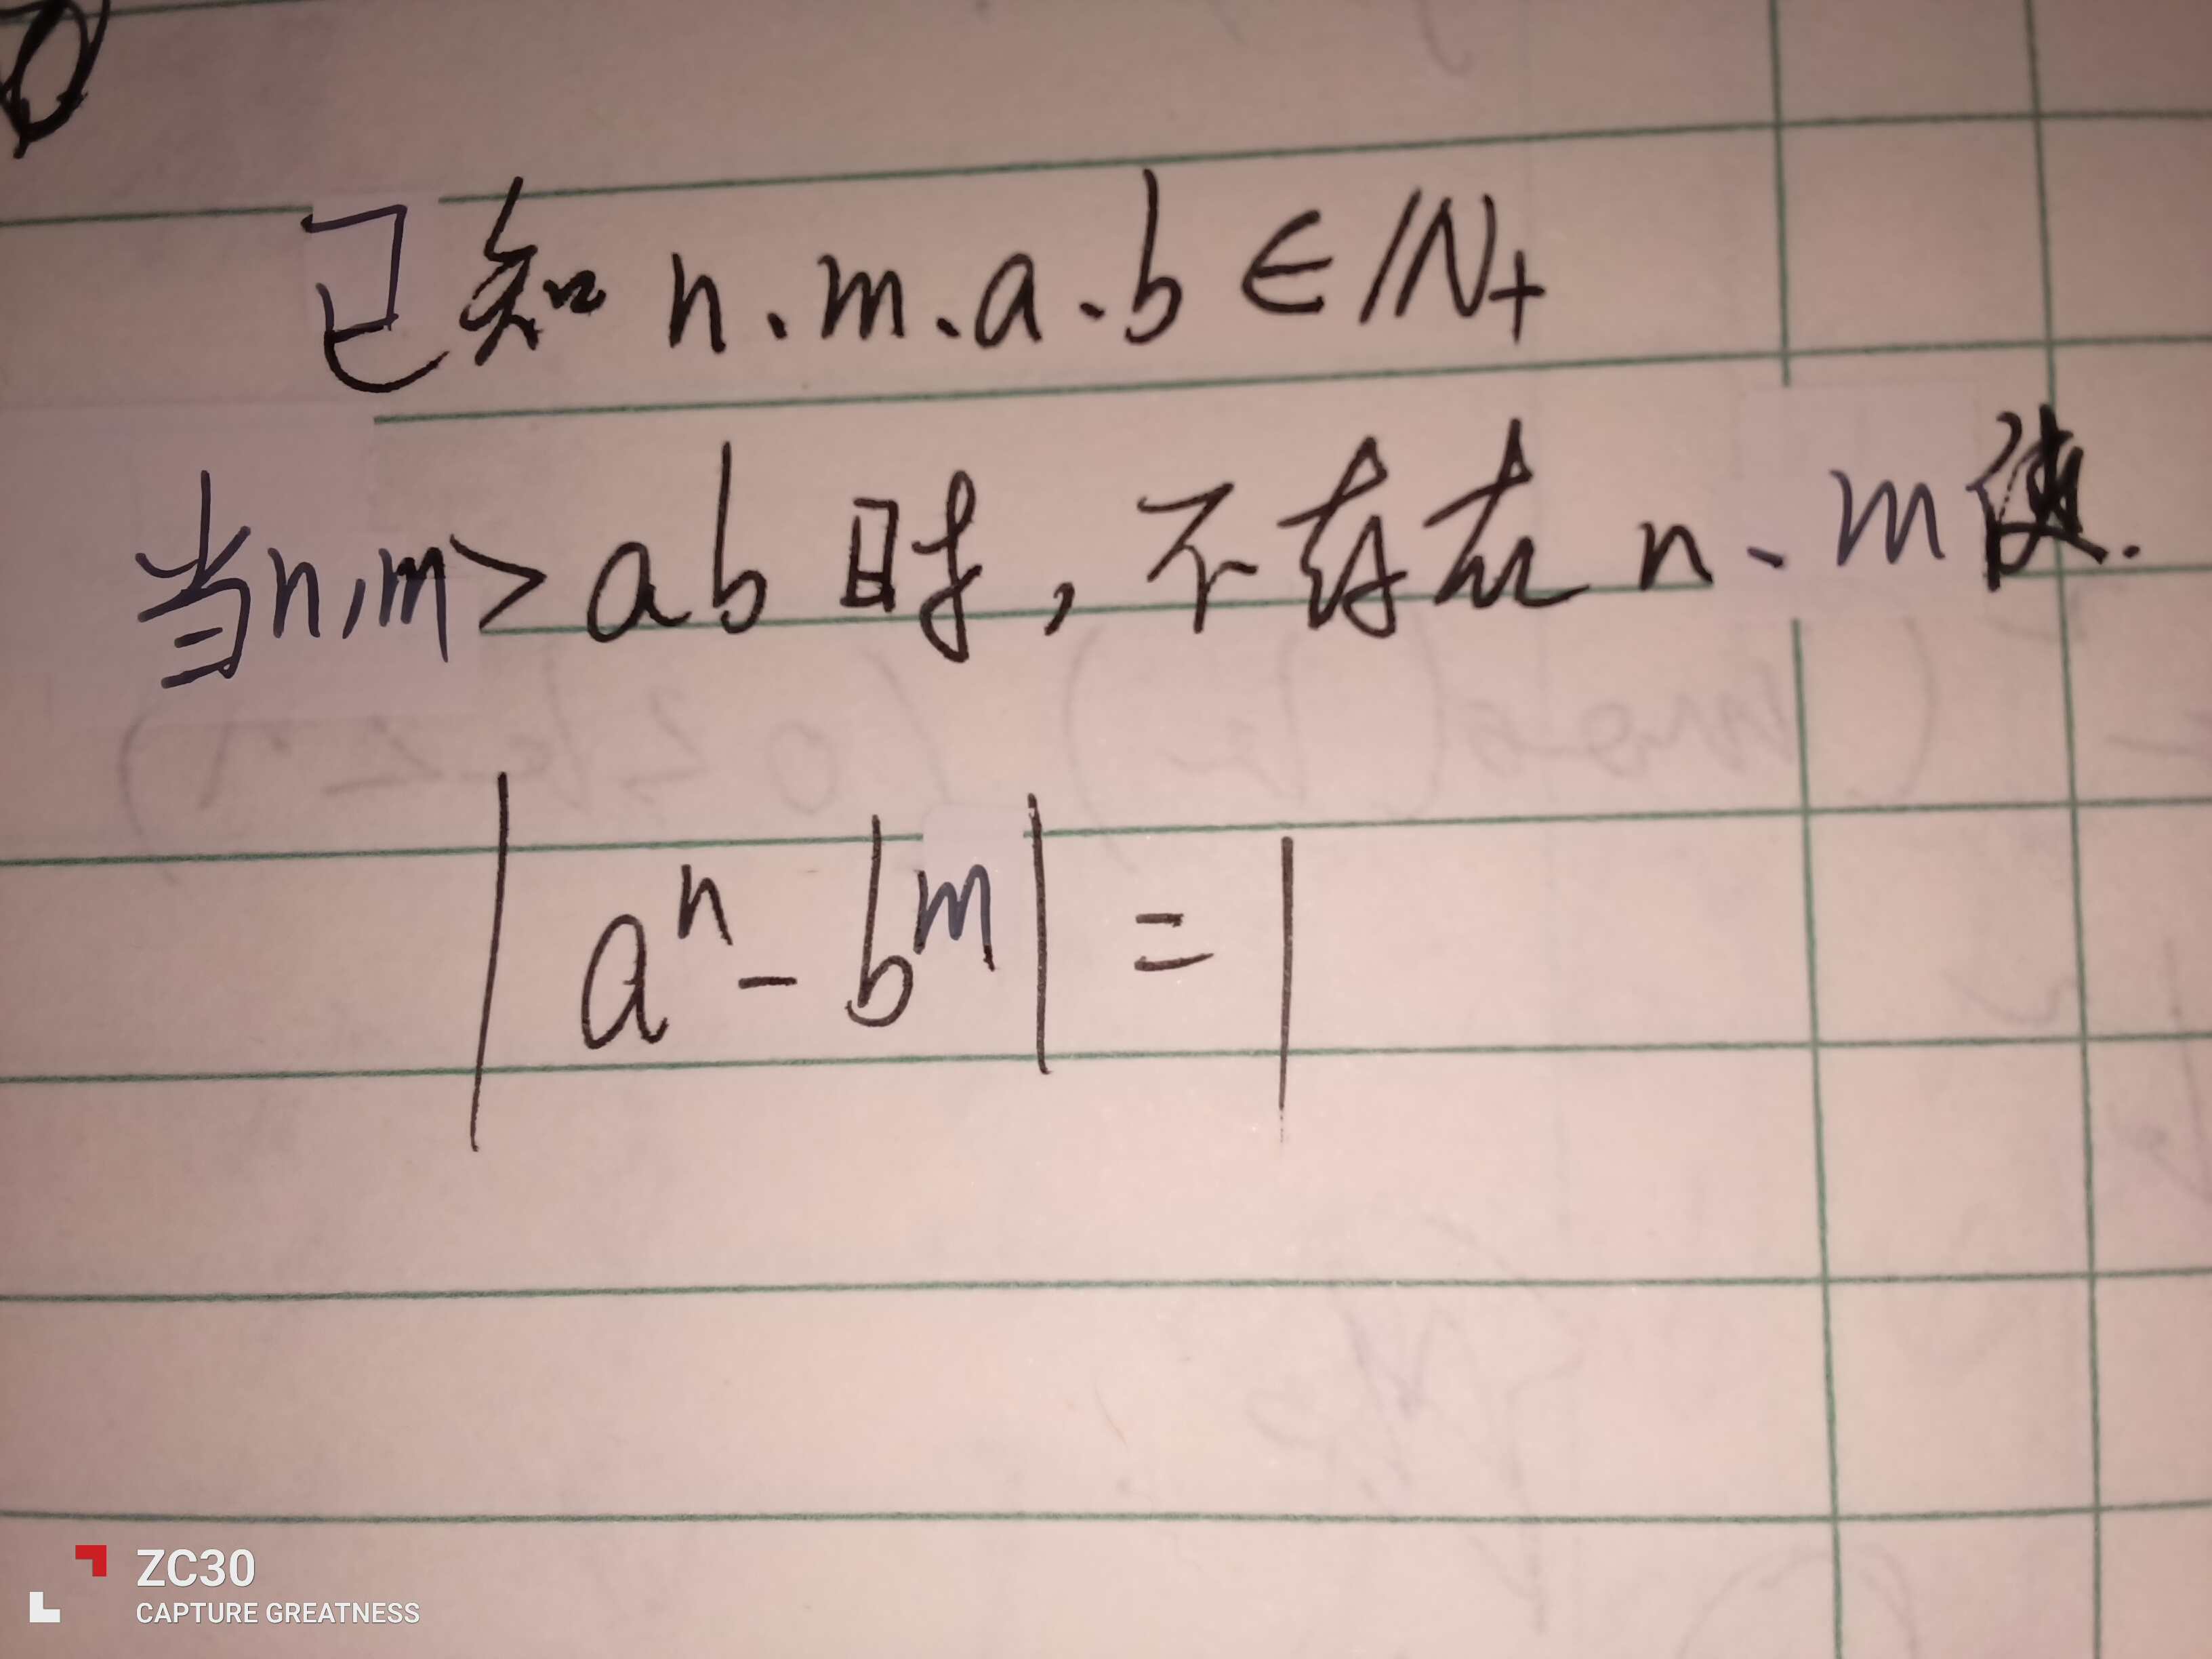 已知 n、m、a、b ∈ N+
当n,m>ab时,不存在n、m使.
|a^n - b^m| = 1
ZC30
CAPTURE GREATNESS